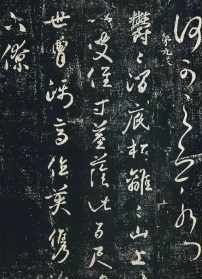 鬱〻澗底松離〻山上
以彼徑寸莖蔭此百尺
世胄躡高位英俊沈
下僚